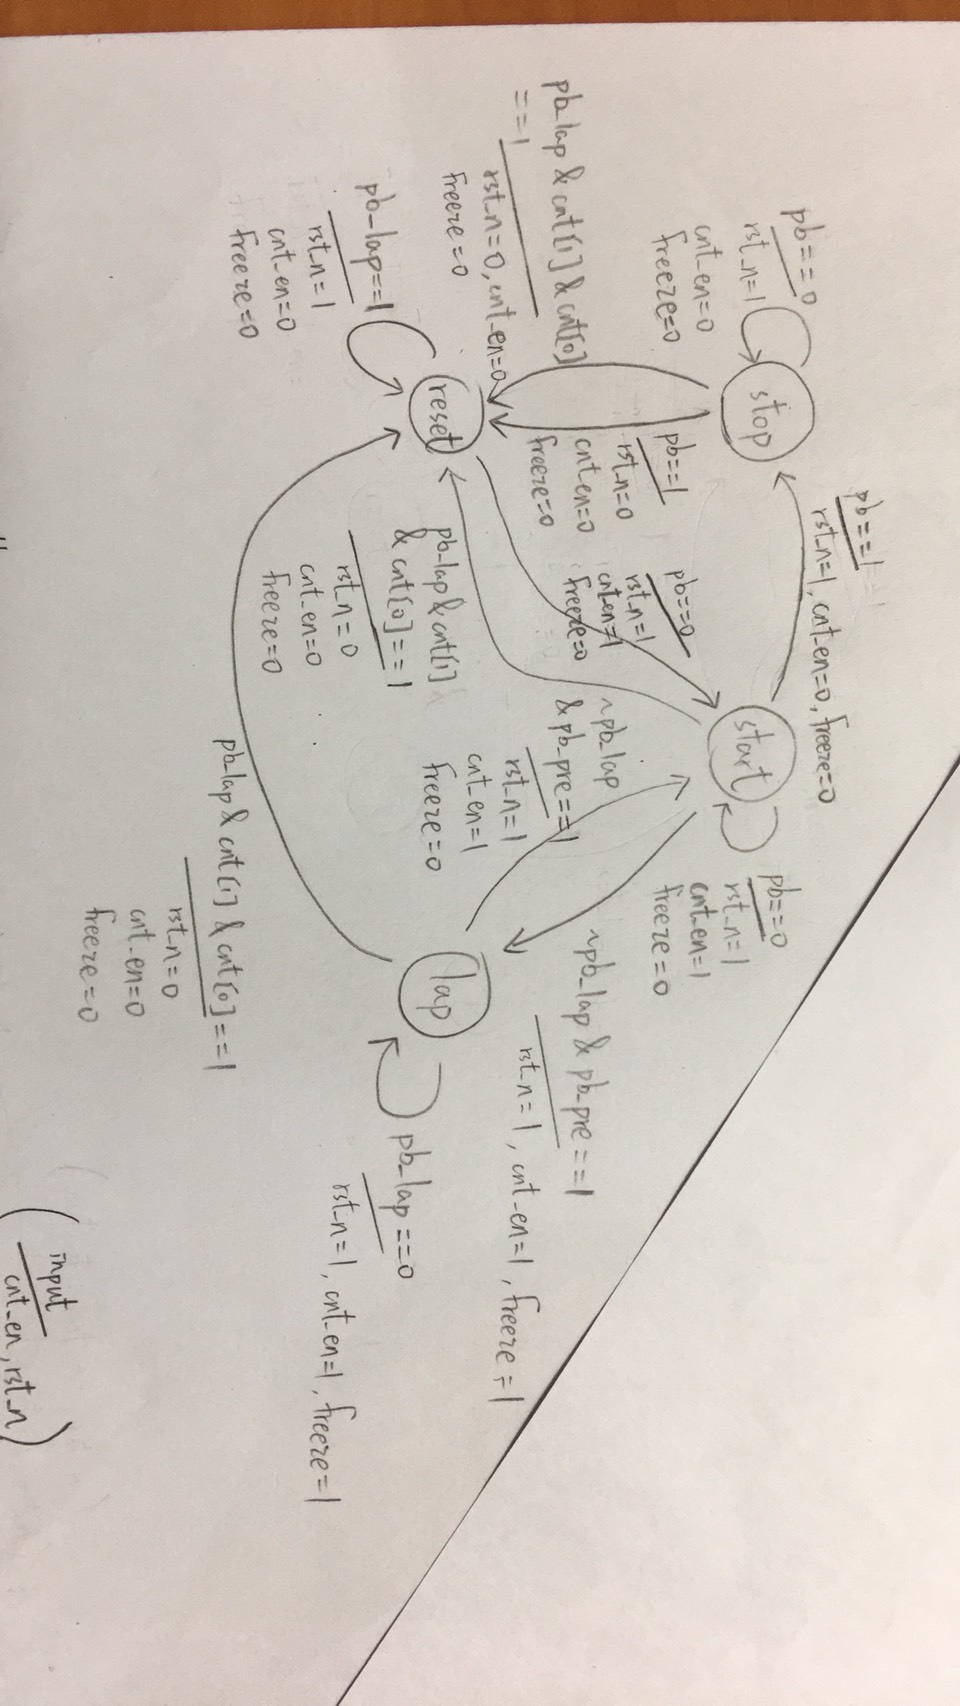 pb==1
rst_n=1, cnt_en=0, freeze=0
pb==0
rst_n=1
cnt_en=0
freeze=0
stop
start
pb==0
rst_n=1
cnt_en=1
freeze=0
pb==1
rst_n=0
cnt_en=0
freeze=0
pb==0
rst_n=1
cnt_en=1
freeze=0
pb_lap & cnt[1] & cnt[0]
==1
rst_n=0, cnt_en=0
freeze=0
~pb_lap
& pb_pre==1
rst_n=1
cnt_en=1
freeze=0
~pb_lap & pb_pre==1
rst_n=1, cnt_en=1, freeze=1
reset
lap
pb_lap==1
rst_n=1
cnt_en=0
freeze=0
pb_lap & cnt[1]
& cnt[0]==1
rst_n=0
cnt_en=0
freeze=0
pb_lap==0
rst_n=1, cnt_en=1, freeze=1
pb_lap & cnt[1] & cnt[0]==1
rst_n=0
cnt_en=0
freeze=0
(input
cnt_en, rst_n)